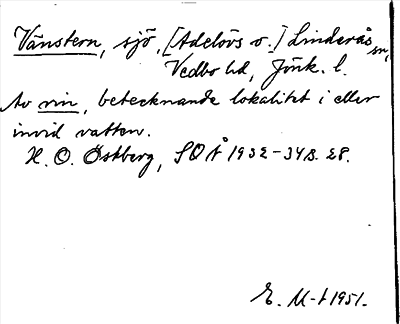 Vänstern, sjö, [Adelövs o.] Linderås sn,
Vedbo hd, Jönk. l.
Av vin, betecknande lokalitet i eller
invid vatten.
H. O. Östberg, SOÅ 1932-34 s. 28.
E. M-t 1951.